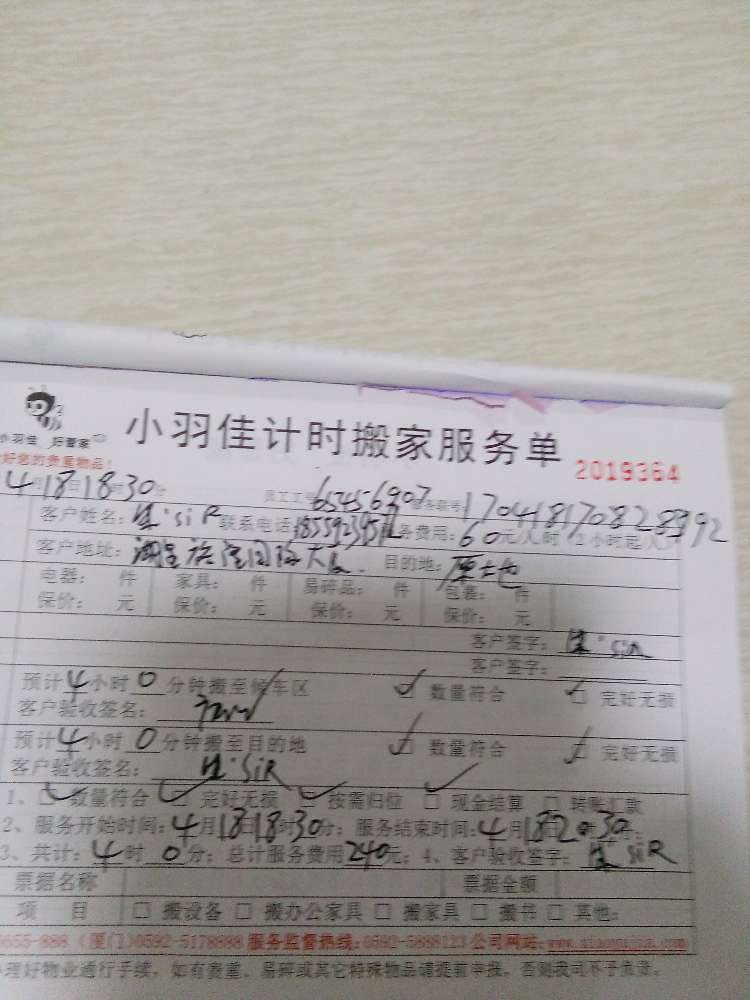 小羽佳计时搬家服务单
小羽佳 好管家
2019364
好您的贵重物品!
4月18日18时30分 员工工号 65456907 服务联号 170418170828992
客户姓名: sir 联系电话 务费用: 60元/人时 (2小时起/人)
客户地址: 大厦 目的地: 原土地
电器: 件 家具: 件 易碎品: 件 包裹: 件
保价: 元 保价: 元 保价: 元 保价: 元
客户签字: sir
客户签字:
预计4小时0分钟搬至候车区 ☑ 数量符合 ☑ 完好无损
客户验收签名:
预计4小时0分钟搬至目的地 ☑ 数量符合 ☑ 完好无损
客户验收签名: SiR
1、☑ 数量符合 ☑ 完好无损 ☑ 按需归位 ☑ 现金结算 □ 转账汇款
2、服务开始时间: 4月18日18时30分; 服务结束时间: 4月18日20时30
3、共计: 4时0分; 总计服务费用240元; 4、客户验收签字: SiR
票据名称 票据金额
项 目 □ 搬设备 □ 搬办公家具 □ 搬家具 □ 搬书 □ 其他:
6655-888 (厦门)0592-5178888 服务监督热线:0592-5888123 公司网站:www.xiaoyujia.com
理好物业通行手续,如有贵重、易碎或其它特殊物品请提前申报,否则我司不予负责。